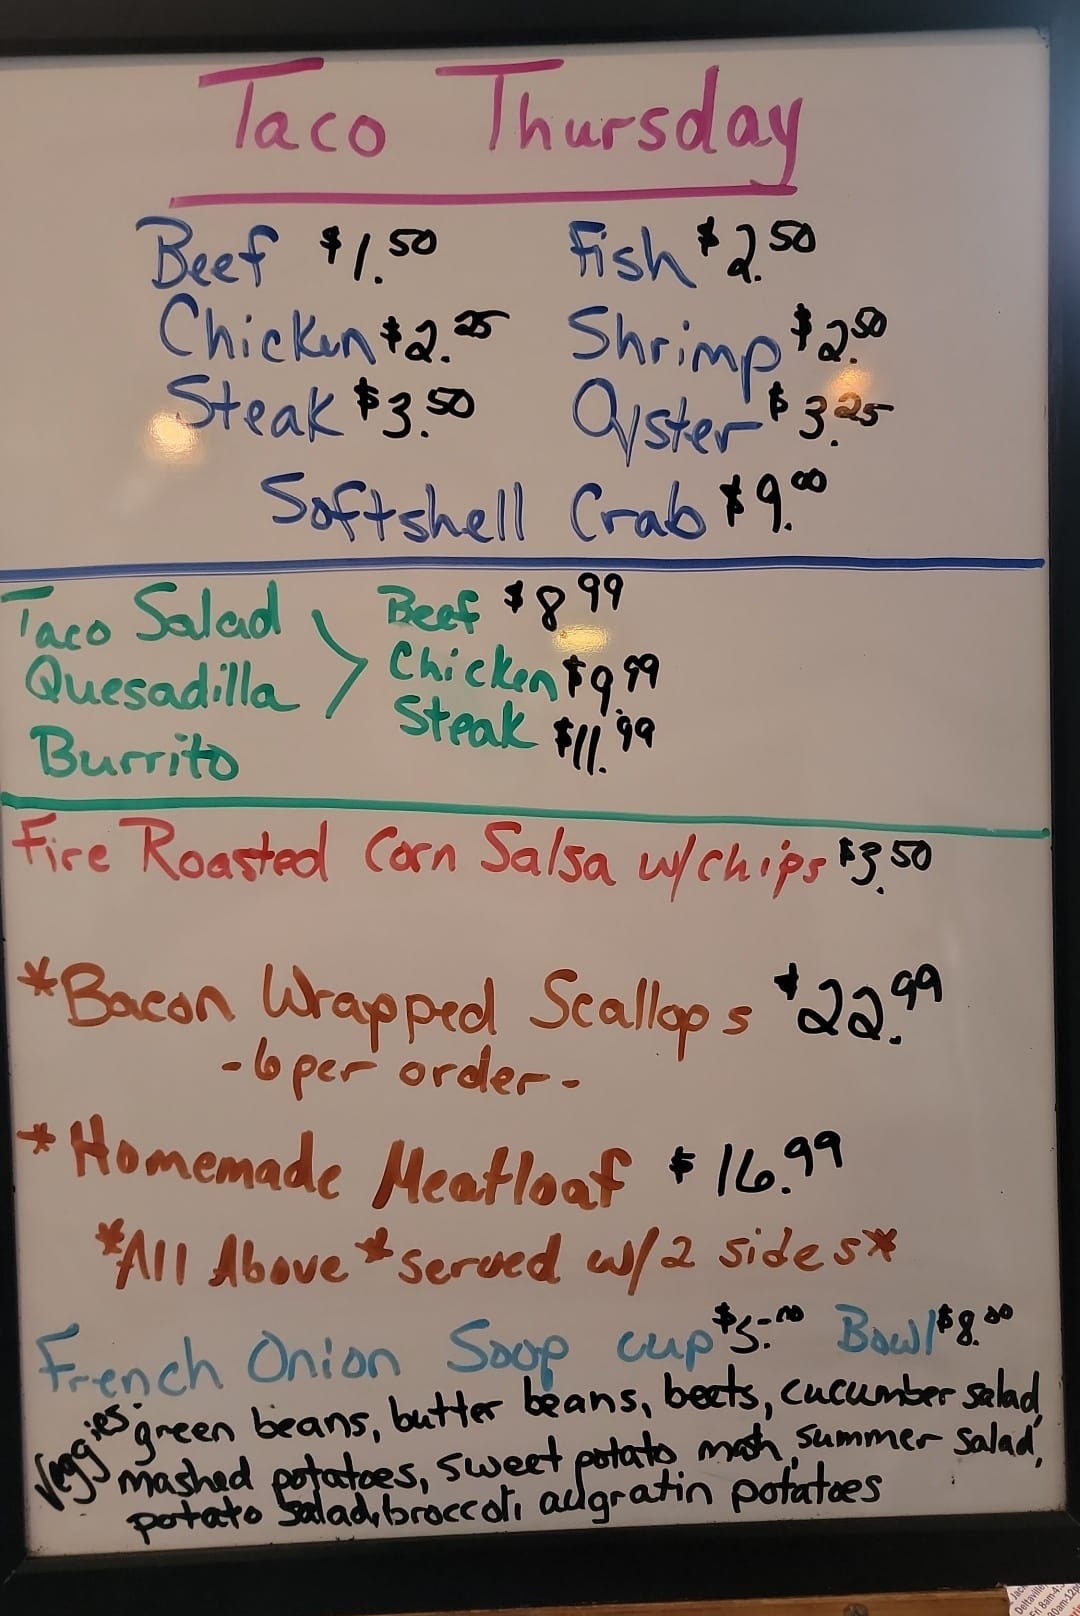 Taco Thursday
Beef $1.50 Fish $2.50
Chicken $2.25 Shrimp $2.50
Steak $3.50 Oyster $3.25
Softshell Crab $9.00
Taco Salad Beef $8.99
Quesadilla Chicken $9.99
Burrito Steak $11.99
Fire Roasted Corn Salsa w/chips $3.50
*Bacon Wrapped Scallops $22.99
-6 per order-
*Homemade Meatloaf $16.99
*All Above* served w/2 sides*
French Onion Soup cup $5.00 Bowl $8.00
Veggies: green beans, butter beans, beets, cucumber salad,
mashed potatoes, sweet potato mash, summer salad,
potato salad, broccoli, augratin potatoes
Deltaville